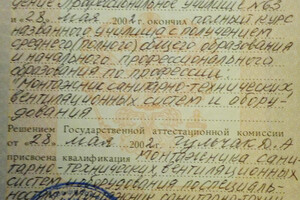 дение Профессиональное училище №63
и 28 мая 2002 г. окончил полный курс
названного училища с получением
среднего (полного) общего образования
и начального профессионального
образования по профессии:
Монтажник санитарно-технических,
вентиляционных систем и обору-
дования
Решением Государственной аттестационной комиссии
от 28 мая 2002 Д.А
присвоена квалификация монтажника сани-
тарно-технических вентиляционных
систем и оборудования по специаль-
санитарно-техни